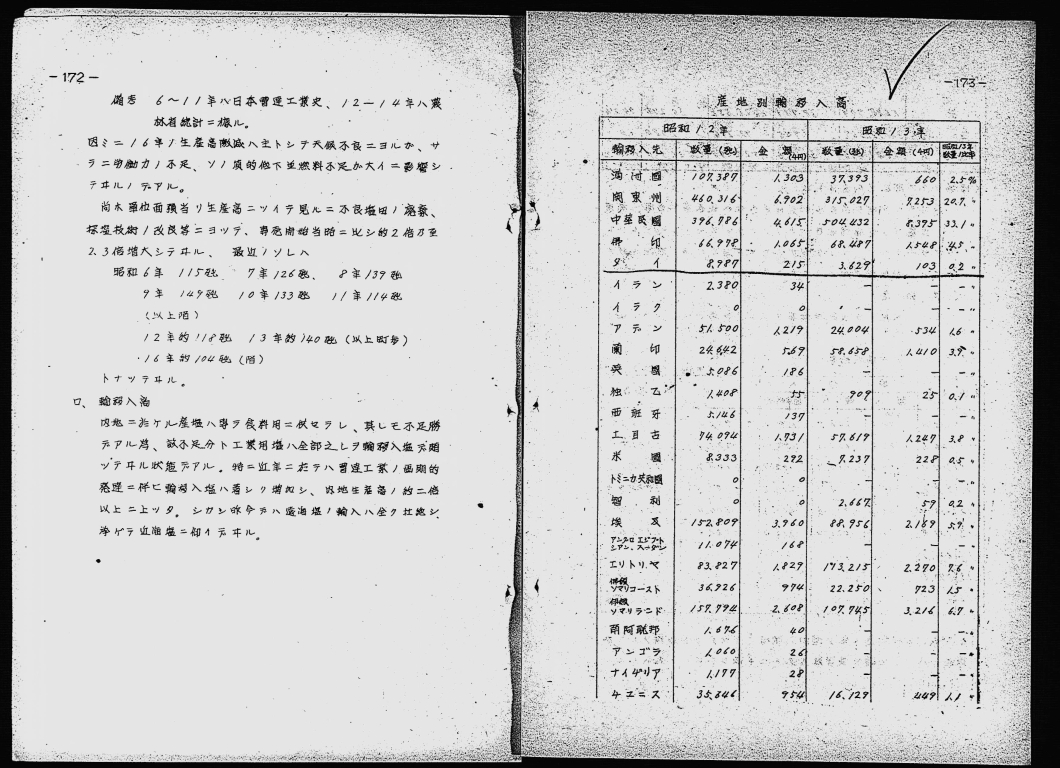 -172-
備考 6〜11年ハ日本曹達工業史、12―14年ハ農
林省統計ニ據ル。
因ミニ16年ノ生産高激減ハ主トシテ天候不良ニヨルガ、サ
ラニ労働力ノ不足、ソノ質的低下並燃料不足ガ大イニ影響シ
テヰルノデアル。
尚木單位面積当リ生産高ニツイテ見ルニ不良塩田ノ廃棄、
採塩技術ノ改良等ニヨッテ、専売開始当時ニ比シ約2倍乃至
2.3倍増大シテヰル、 最近ノソレハ
昭和6年 115砘 7年126砘、 8年139砘
9年 149砘 10年133砘 11年114砘
(以上陌)
12年約118砘 13年約140砘(以上町歩)
16年約104砘(陌)
トナッテヰル。
ロ、 輸移入高
内地ニ於ケル産塩ハ専ラ食料用ニ供セラレ、其レモ不足勝
デアル為、
ッテヰル状態デアル。特ニ近年ニ於テハ曹達工業ノ画期的
発達ニ伴ヒ輸移入塩ハ著シク増加シ、内地生産高ノ約二倍
以上ニ上ッタ。シカシ昨今デハ遠海塩ノ輸入ハ全ク杜絶シ、
挙ゲテ近海塩ニ仰イデヰル。
-173-
産地別輸移入高
昭和12年 昭和13年
輸移入先 数量(砘) 金額(千円) 数量(砘) 金額(千円) 昭和13年数量比率
満洲國 107.387 1.303 37.393 660 2.5%
関東州 460.316 6.902 315.027 7.253 20.7〃
中華民國 396.786 4.615 504.432 8.375 33.1〃
佛印 66.978 1.065 68.487 1.548 4.5〃
タイ 8.987 215 3.629 103 0.2〃
イラン 2.380 34 — — —〃
イラク 0 0 — — —〃
アデン 51.500 1.219 24.004 534 1.6〃
蘭印 24.642 569 58.658 1.410 3.9〃
英國 5.086 186 — — —〃
独乙 1.408 55 909 25 0.1〃
西班牙 5.146 137 — — —
土耳古 74.074 1.731 57.619 1.247 3.8〃
米國 8.333 292 7.237 228 0.5〃
ドミニカ共和國 0 0 — — —〃
智利 0 0 2.667 59 0.2〃
埃及 152.809 3.960 88.956 2.169 5.9〃
アングロエジプトシアン、スーダン 11.074 168 — — —〃
エリトリヤ 83.827 1.829 113.215 2.270 7.6〃
佛領ソマリコースト 36.926 974 22.250 723 1.5〃
伊領ソマリランド 157.794 2.608 107.745 3.216 6.7〃
南阿聯邦 1.676 40 — — —〃
アンゴラ 1.060 26 — — —〃
ナイヂリア 1.177 28 — — —〃
チュニス 35.846 954 16.129 449 1.1〃